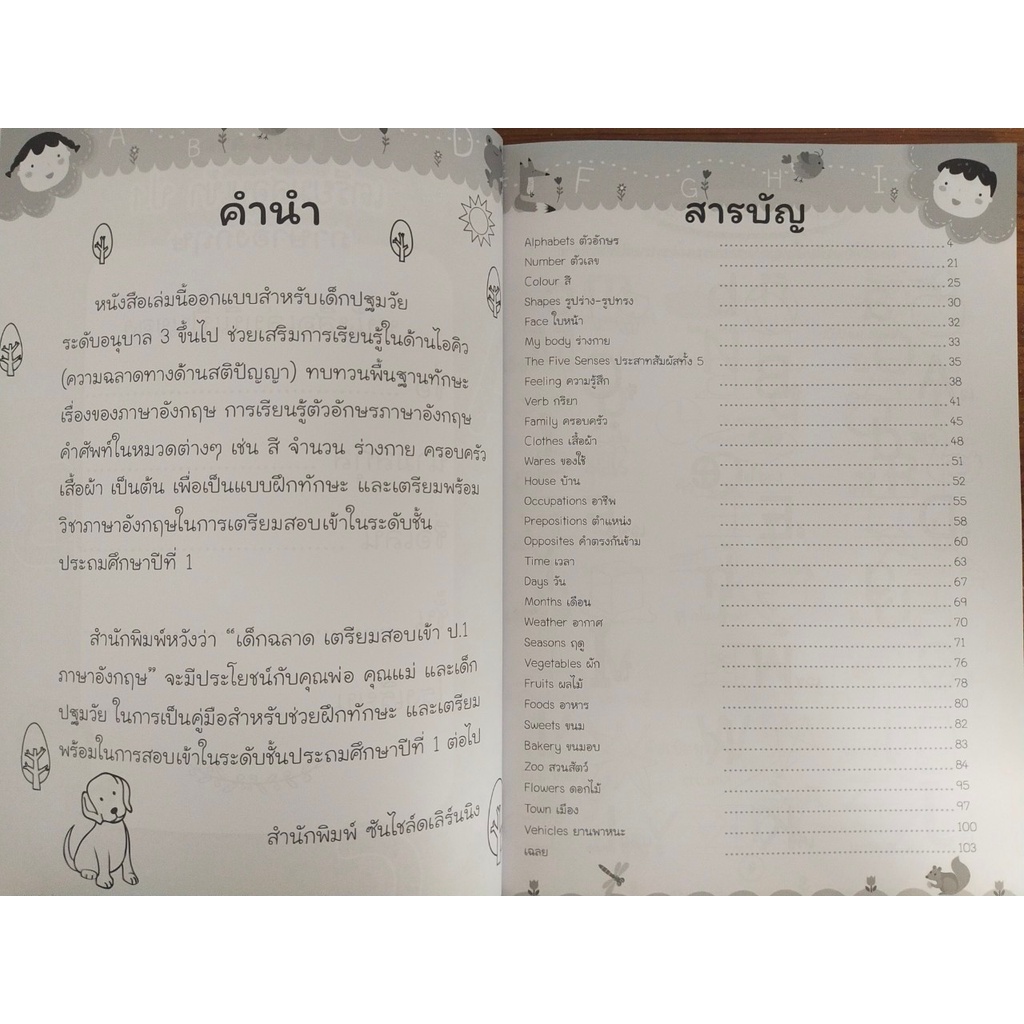 A B C D
คำนำ
หนังสือเล่มนี้ออกแบบสำหรับเด็กปฐมวัย
ระดับอนุบาล 3 ขึ้นไป ช่วยเสริมการเรียนรู้ในด้านไอคิว
(ความฉลาดทางด้านสติปัญญา) ทบทวนพื้นฐานทักษะ
เรื่องของภาษาอังกฤษ การเรียนรู้ตัวอักษรภาษาอังกฤษ
คำศัพท์ในหมวดต่างๆ เช่น สี จำนวน ร่างกาย ครอบครัว
เสื้อผ้า เป็นต้น เพื่อเป็นแบบฝึกทักษะ และเตรียมพร้อม
วิชาภาษาอังกฤษในการเตรียมสอบเข้าในระดับชั้น
ประถมศึกษาปีที่ 1
สำนักพิมพ์หวังว่า “เด็กฉลาด เตรียมสอบเข้า ป.1
ภาษาอังกฤษ” จะมีประโยชน์กับคุณพ่อ คุณแม่ และเด็ก
ปฐมวัย ในการเป็นคู่มือสำหรับช่วยฝึกทักษะ และเตรียม
พร้อมในการสอบเข้าในระดับชั้นประถมศึกษาปีที่ 1 ต่อไป
สำนักพิมพ์ ซันไชล์ดเลิร์นนิง
F G H I
สารบัญ
Alphabets ตัวอักษร 4
Number ตัวเลข 21
Colour สี 25
Shapes รูปร่าง-รูปทรง 30
Face ใบหน้า 32
My body ร่างกาย 33
The Five Senses ประสาทสัมผัสทั้ง 5 35
Feeling ความรู้สึก 38
Verb กริยา 41
Family ครอบครัว 45
Clothes เสื้อผ้า 48
Wares ของใช้ 51
House บ้าน 52
Occupations อาชีพ 55
Prepositions ตำแหน่ง 58
Opposites คำตรงกันข้าม 60
Time เวลา 63
Days วัน 67
Months เดือน 69
Weather อากาศ 70
Seasons ฤดู 71
Vegetables ผัก 76
Fruits ผลไม้ 78
Foods อาหาร 80
Sweets ขนม 82
Bakery ขนมอบ 83
Zoo สวนสัตว์ 84
Flowers ดอกไม้ 95
Town เมือง 97
Vehicles ยานพาหนะ 100
เฉลย 103